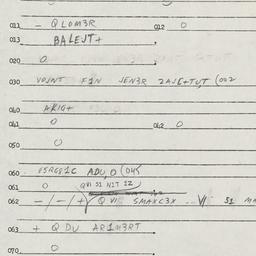 011 - QLOM3R 012 0
013 BALEUT+
020 0
030 VOJNT F1N JEN3R 2AJE+TUT (002
040 AKIG+
041 0 042 0
050 0
060 ADU,0 (045
061 0 QVI S1 NIT IZ
062 -/-/+/ Q VI SMAXC3X VI S1
063 + Q DU AR1M3RT
070 0